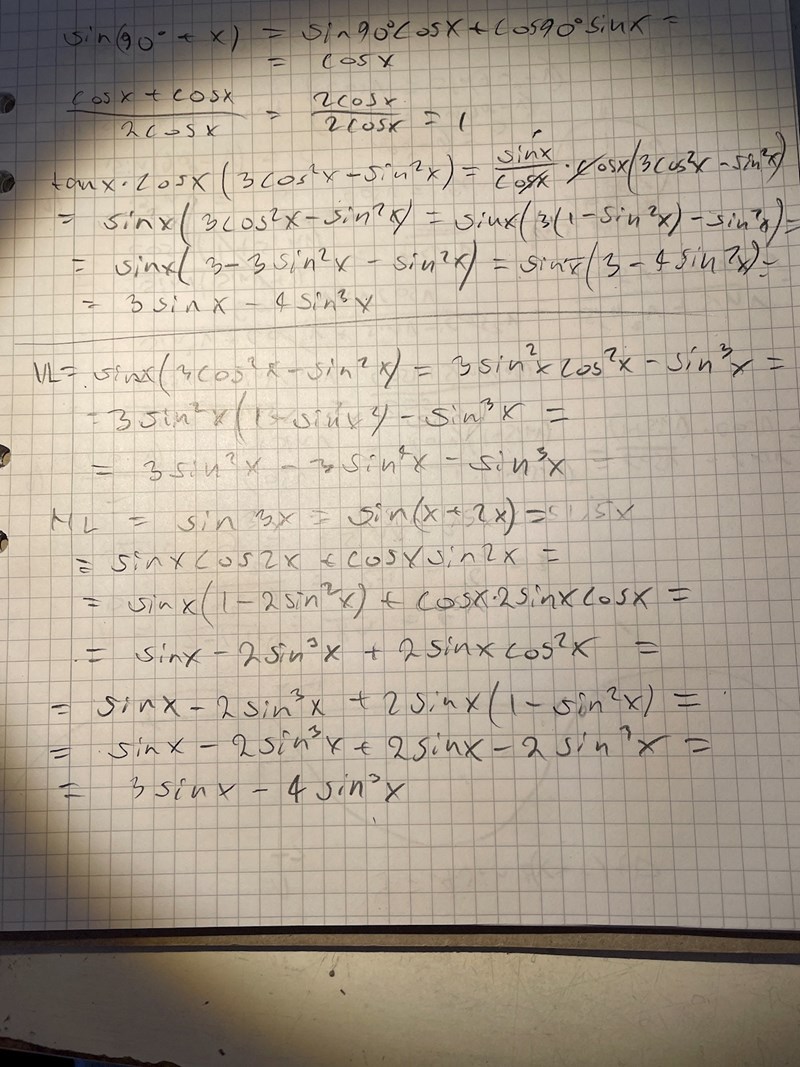 sin(90° + x) = sin90°cosx + cos90°sinx =
= cosx
(cosx + cosx)/(2cosx) = (2cosx)/(2cosx) = 1
tanx · cosx (3cos²x - sin²x) = sinx/cosx · cosx(3cos²x - sin²x)
= sinx(3cos²x - sin²x) = sinx(3(1 - sin²x) - sin²x) =
= sinx(3 - 3sin²x - sin²x) = sinx(3 - 4sin²x) =
= 3sinx - 4sin³x
VL = sinx(3cos²x - sin²x) = 3sin²x cos²x - sin³x =
= 3sin²x(1 - sin²x) - sin³x =
= 3sin²x - 3sin⁴x - sin³x
HL = sin 3x = sin(x + 2x) =
= sinxcos2x + cosxsin2x =
= sinx(1 - 2sin²x) + cosx·2sinxcosx =
= sinx - 2sin³x + 2sinxcos²x =
= sinx - 2sin³x + 2sinx(1 - sin²x) =
= sinx - 2sin³x + 2sinx - 2sin³x =
= 3sinx - 4sin³x